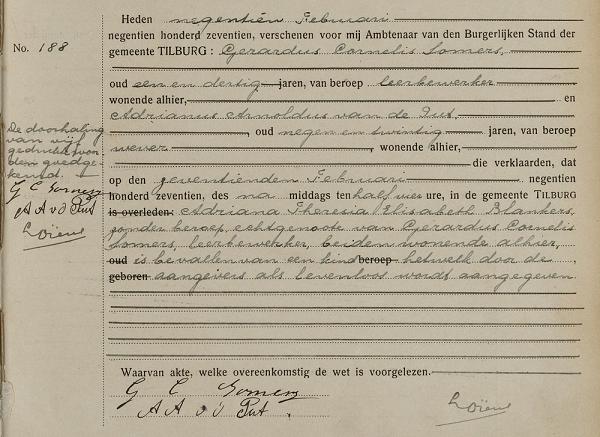 Heden negentien Februari
negentien honderd zeventien, verschenen voor mij Ambtenaar van den Burgerlijken Stand der
No. 188
gemeente TILBURG: Gerardus Cornelis Somers,
oud een en dertig jaren, van beroep leerbewerker
wonende alhier, en
Adrianus Arnoldus van de Put,
, oud negen en twintig jaren, van beroep
wever, wonende alhier,
die verklaarden, dat
op den zeventienden Februari negentien
honderd zeventien, des na middags ten half vier ure, in de gemeente TILBURG
is overleden: Adriana Theresia Elisabeth Blankers,
zonder beroep, echtgenoote van Gerardus Cornelis
Somers, leerbewerker, beiden wonende alhier,
oud is bevallen van een kind beroep hetwelk door de
geboren aangevers als levenloos wordt aangegeven
Waarvan akte, welke overeenkomstig de wet is voorgelezen.
G C Somers
A A v d Put.
De doorhaling
van vijf
gedrukte woor
den goedge-
keurd.
G C Somers
A A v d Put